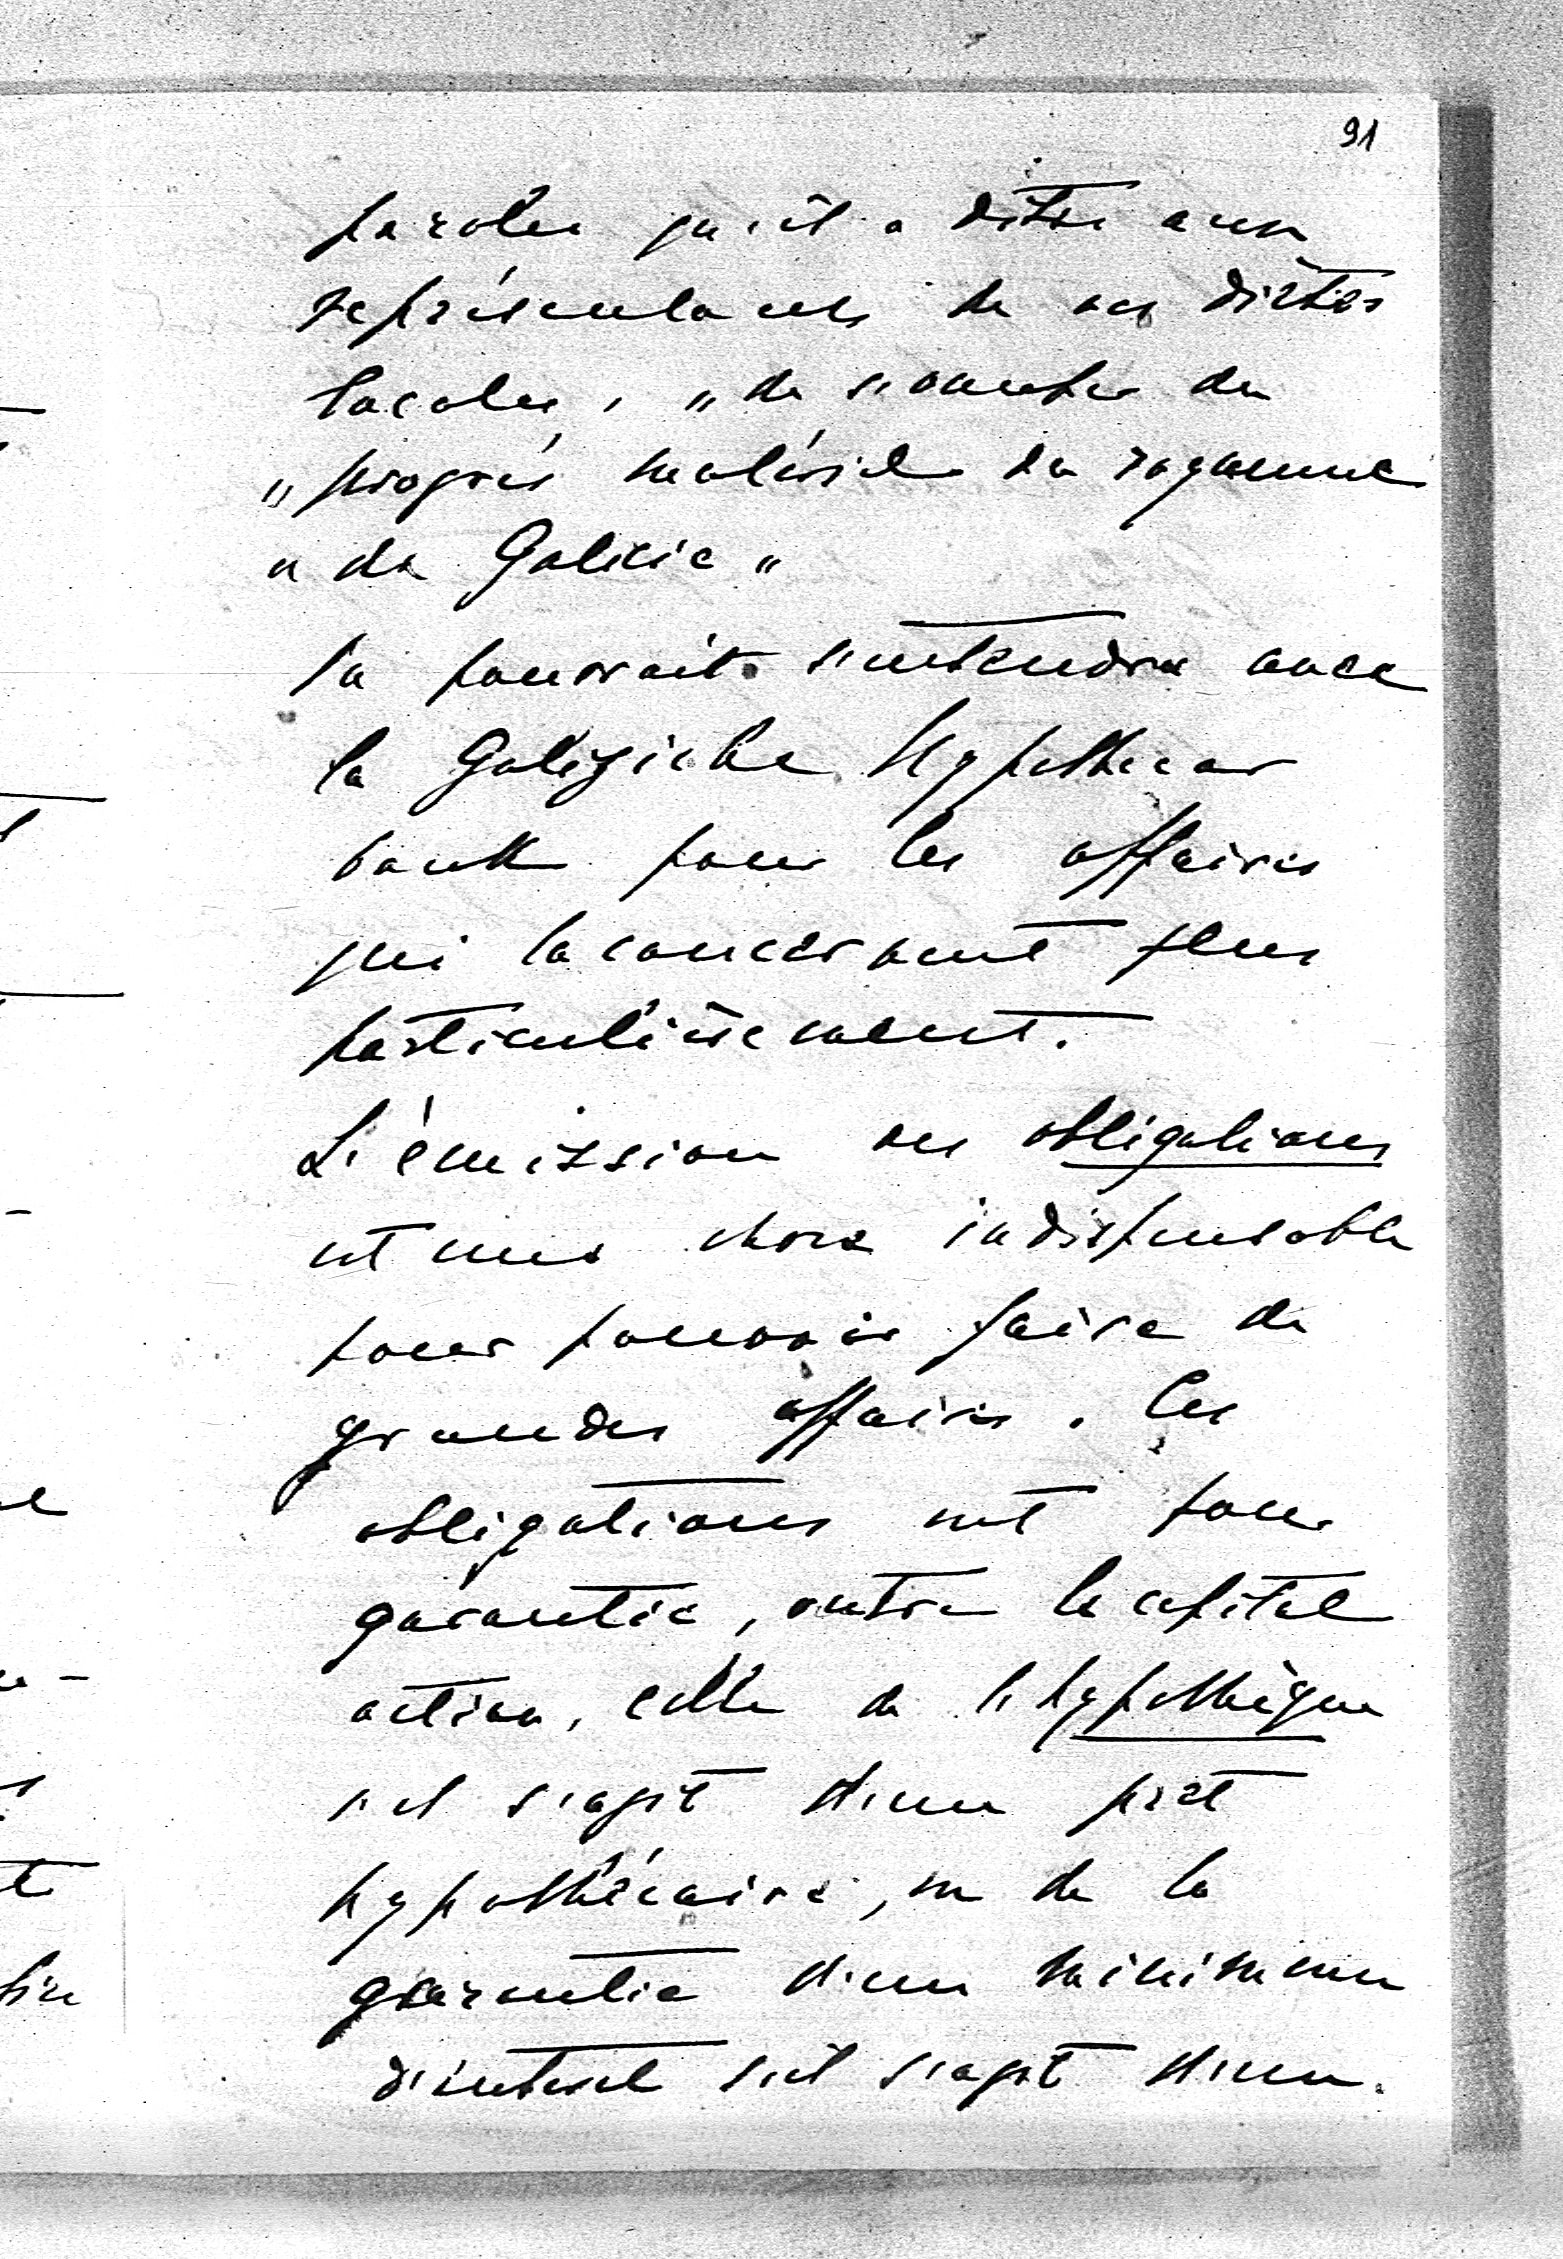 91
paroles qu'il a dites aux
représentants de ces diètes
locales, „de s'occuper du
„progrès matériel du royaume
„de Galicie"
Ça pourrait s'entendre avec
la Galizische Hypothecar
bank pour les affaires
qui la concernent plus
particulièrement.
L'émission en obligations
est une chose indispensable
pour pouvoir faire de
grandes affaires. Ces
obligations ont pour
garantie, outre le capital
action, celle de l'hypothèque
s'il s'agit d'un prêt
hypothécaire, ou de la
garantie d'un minimum
d'intérêt s'il s'agit d'un